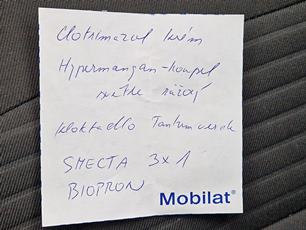 Clotrimazol krém
Hypermangan-koupel
světle růžový
kloktadlo Tantum verde
SMECTA 3x1
BIOPRON
Mobilat®